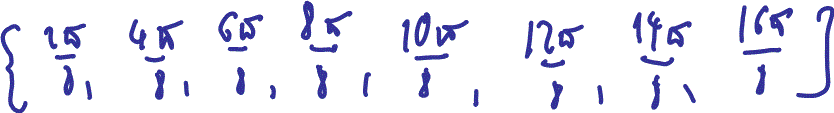 { 2π/8, 4π/8, 6π/8, 8π/8, 10π/8, 12π/8, 14π/8, 16π/8 }